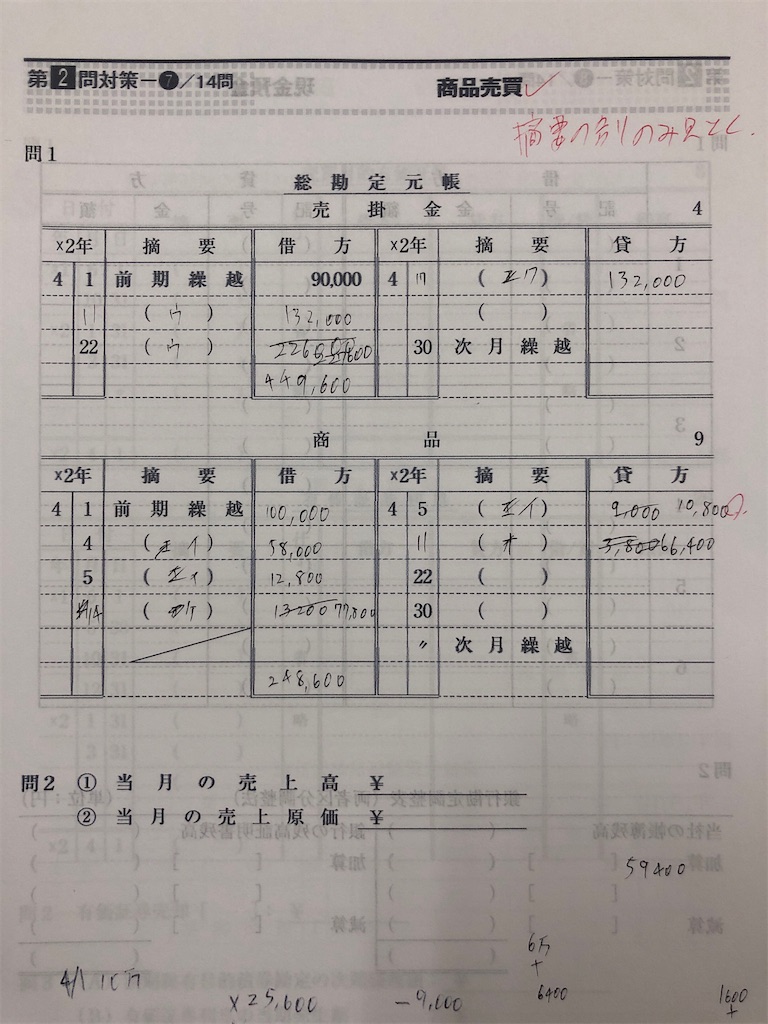 第2問対策－❼／14問 商品売買
摘要の分りのみ見とく.
問1
総勘定元帳
売掛金 4
×2年 摘要 借方 ×2年 摘要 貸方
4 1 前期繰越 90,000 4 17 ( エワ ) 132,000
11 ( ウ ) 132,000 ( )
22 ( ウ ) 30 次月繰越
449,600
商品 9
×2年 摘要 借方 ×2年 摘要 貸方
4 1 前期繰越 100,000 4 5 ( イ ) 9,000 10,800
4 ( イ ) 58,000 11 ( オ ) 66,400
5 ( イ ) 12,800 22 ( )
14 ( ケ ) 13200 77,800 30 ( )
〃 次月繰越
248,600
問2 ① 当月の売上高 ￥
② 当月の売上原価 ￥
59400
6万
+
4/1 10万 × 25,600 －9,000 6400 1600
+